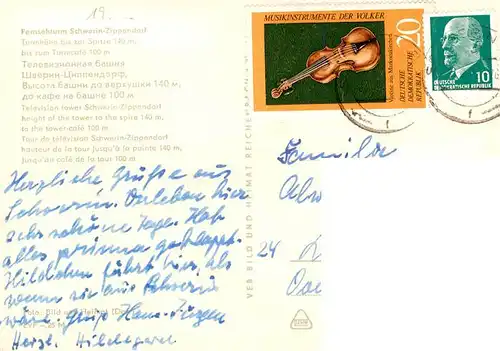 19.
Fernsehturm Schwerin-Zippendorf
Turmhöhe bis zur Spitze 140 m,
bis zum Turmcafé 100 m
Телевизионная башня
Шверин-Циппендорф,
Высота башни до верхушки 140 м,
до кафе на башне 100 м
Television tower Schwerin-Zippendorf
height of the tower to the spire 140 m,
to the tower-café 100 m
Tour de télévision Schwerin-Zippendorf
hauteur de la tour jusqu'à la pointe 140 m,
jusqu'au café de la tour 100 m
Herzliche Grüße aus
Schwerin. Verleben hier
sehr schöne Tage. Hat
alles prima geklappt.
Hildchen fährt hier, als
wenn sie aus Schwerin
wäre. Gruß Hans-Jürgen
Herzl. Hildegard
VEB BILD UND HEIMAT REICHENBACH
MUSIKINSTRUMENTE DER VÖLKER
20
DEUTSCHE
DEMOKRATISCHE
REPUBLIK
Violine aus Markneukirchen
10
DEUTSCHE DEMOKRATISCHE REPUBLIK
Familie
24